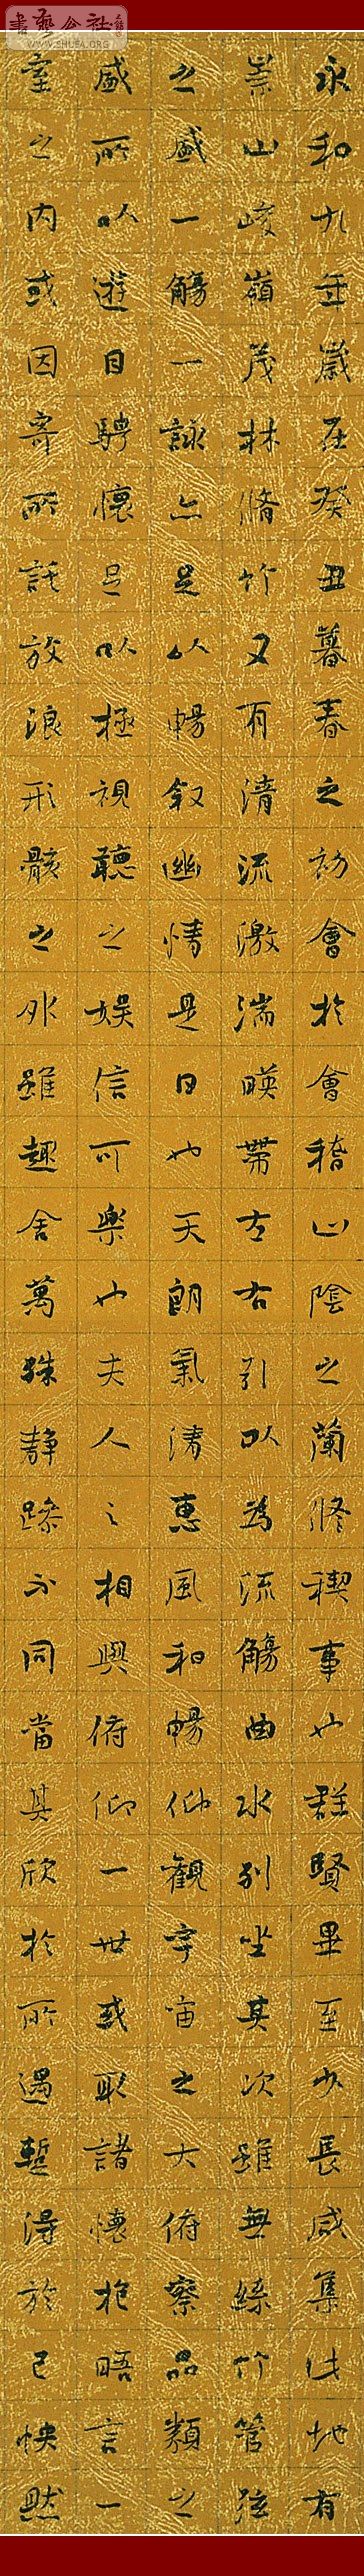 書藝公社
WWW.SHUFA.ORG
永和九年歲在癸丑暮春之初會於會稽山陰之蘭脩稧事也群賢畢至少長咸集此地有
崇山峻嶺茂林脩竹又有清流激湍暎帶左右引以為流觴曲水列坐其次雖無絲竹管弦
之盛一觴一詠亦足以暢敘幽情是日也天朗氣清惠風和暢仰觀宇宙之大俯察品類之
盛所以遊目騁懷足以極視聽之娛信可樂也夫人之相與俯仰一世或取諸懷抱晤言一
室之內或因寄所託放浪形骸之外雖趣舍萬殊靜躁不同當其欣於所遇暫得於己怏然